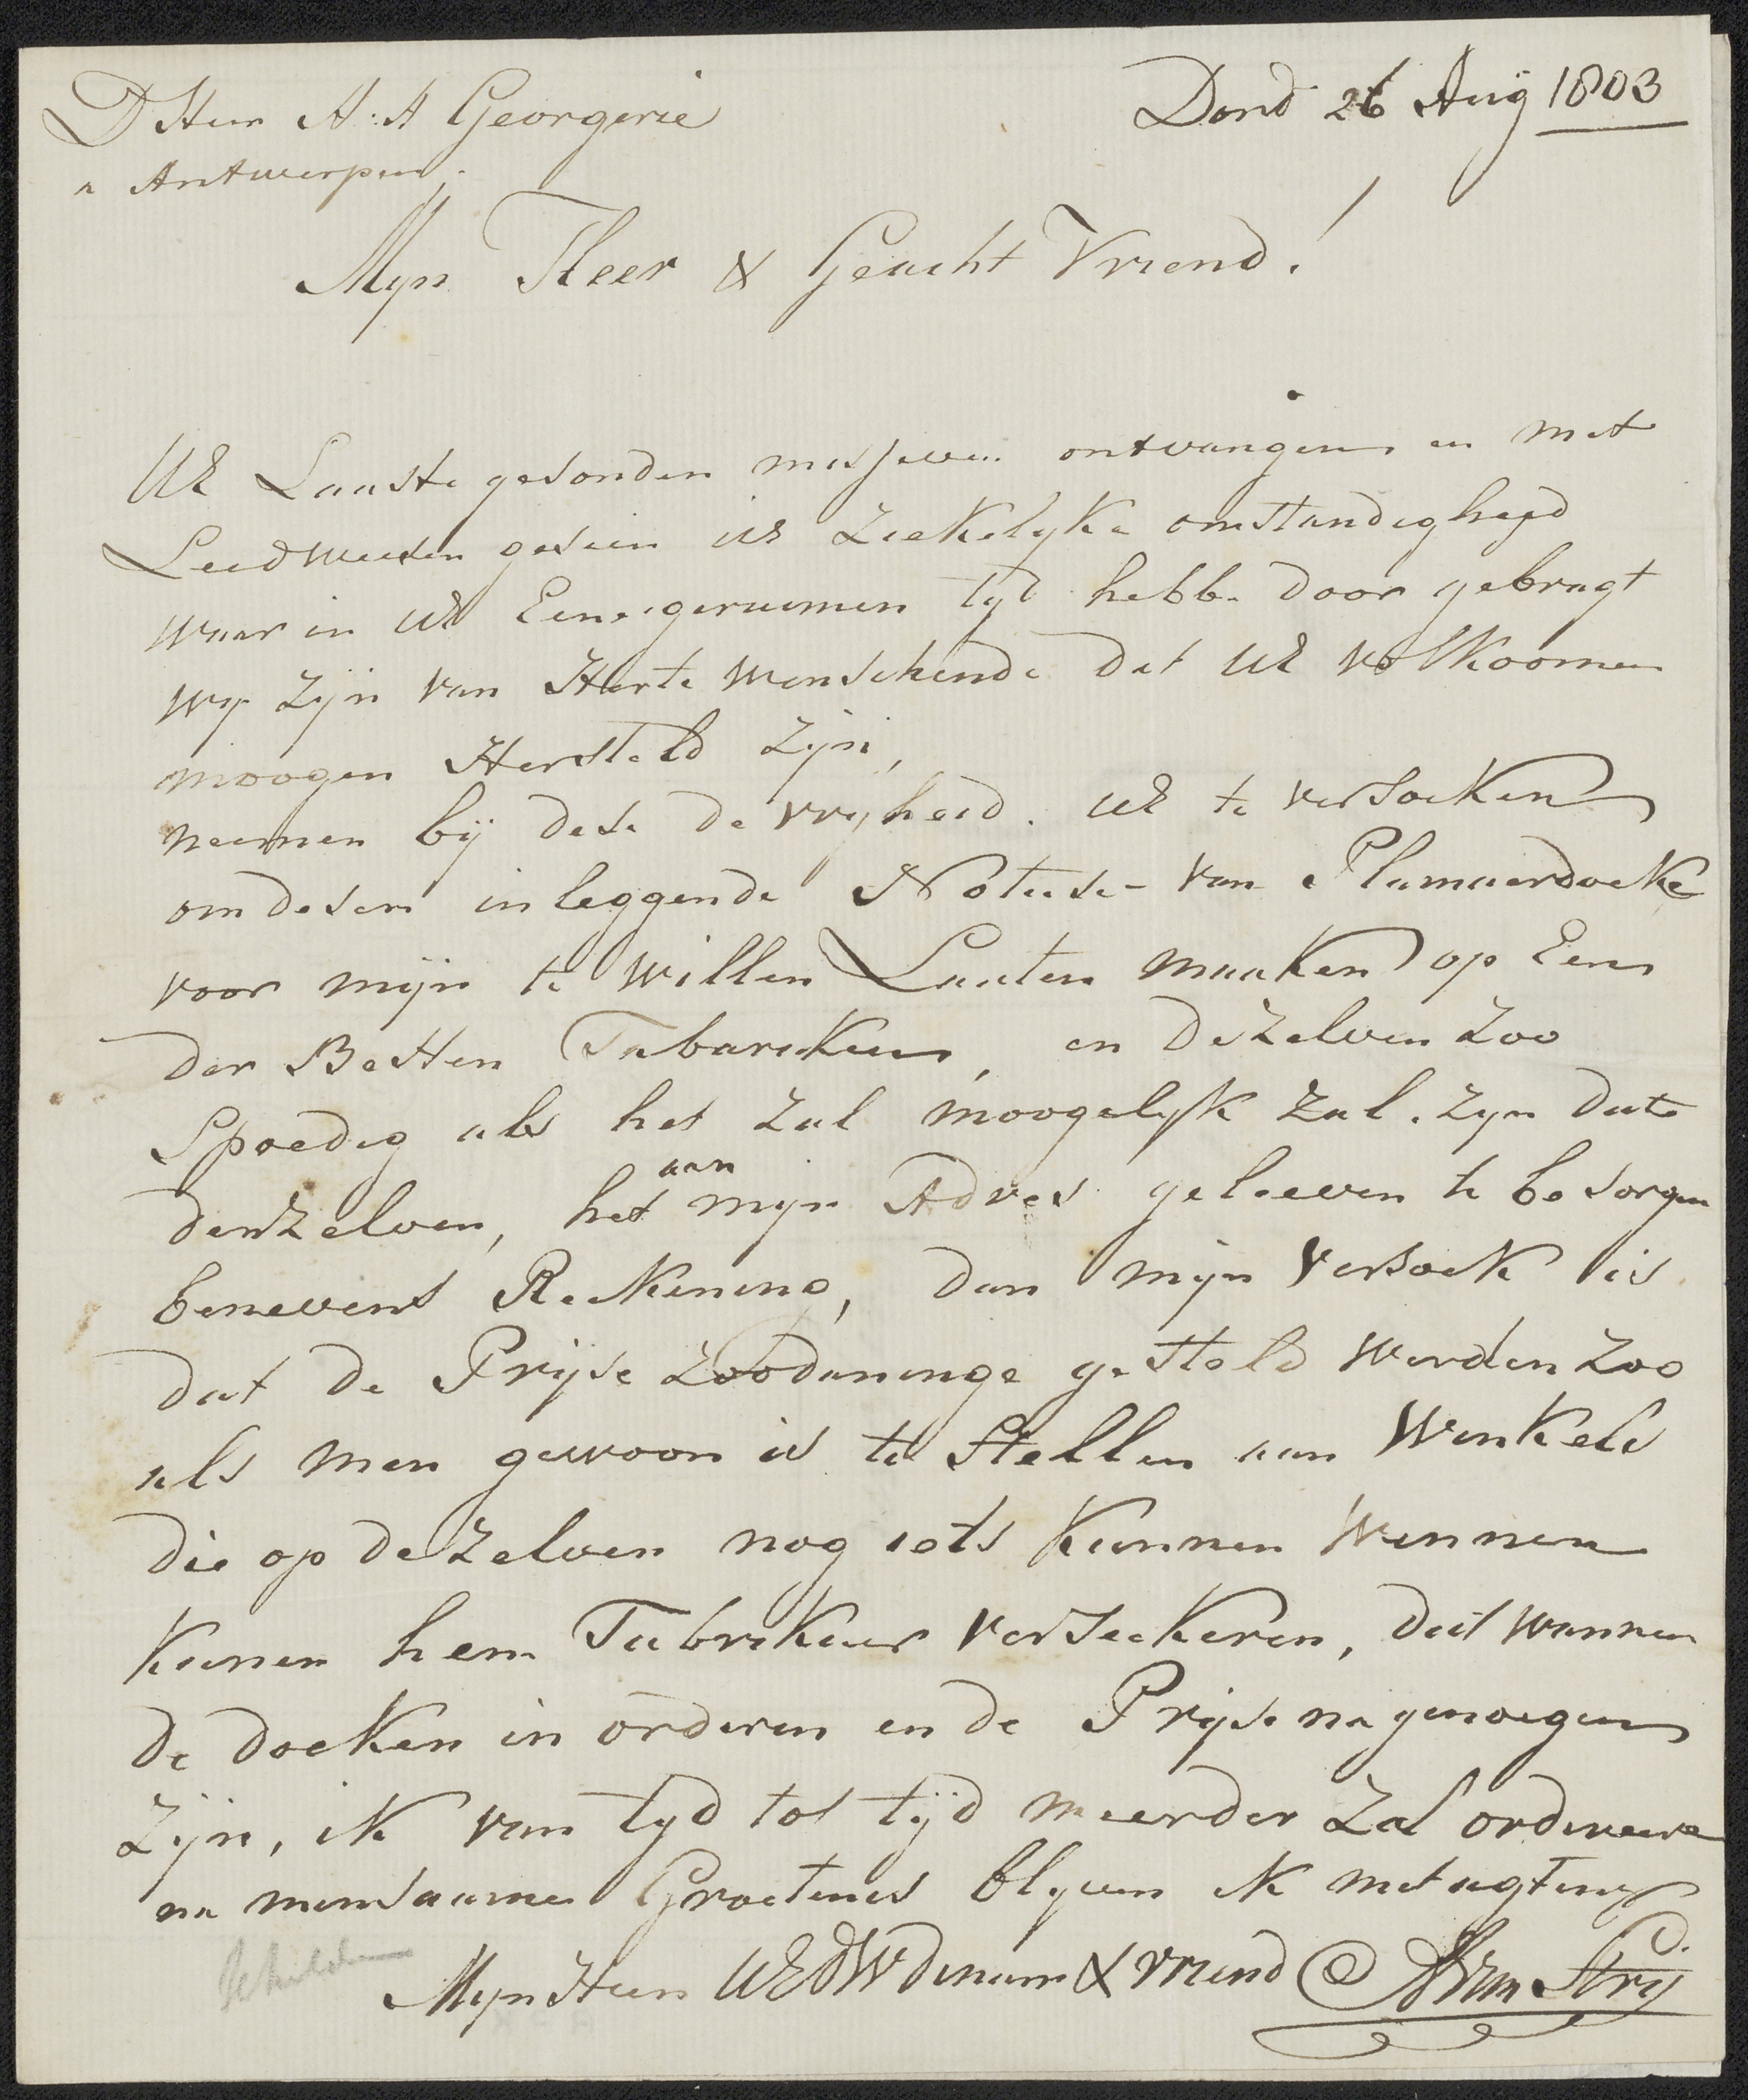 D Heer A: A Georgerie
Dord 26 Aug 1803
a Antwerpen.
Mijn Heer & Geacht Vriend!
UE Laaste gesonden missieven ontvangen en met
Leedweesen gesien UE Ziekelyke omstandigheyd
waar in UE Eene geruimen tyd hebbe door gebragt
wy zijn van Harte wenschende dat UE volkoomen
moogen Hersteld zijn,
neemen bij dese de vryheid. UE te versoeken
om desen inleggende Noteese van Plumuerdoeke
voor mijn te willen Laaten maaken op Een
der Besten Fabarieken, en dezelven zoo
Spoedig als het zal moogelyk zal. zyn dat
denzelven, het aan mijn Adres gelieven te besorgen
benevens Reekening, dan mijn versoek is
dat de Prijse zoodaninge gesteld werden zoo
als men gewoon is te Stellen aan Winkels
die op dezelven nog iets kunnen winnen
kunen hem Fabrikeur verseekeren, dat wanneer
de doeken in orderen en de Prijse na genoegen
Zijn, ik van tyd tot tijd meerder zal ordineeren
na minsaame Groetenis blyven ik met agting
Mijn Heer UEDW dienaar & vriend A Van Strij
Schilder